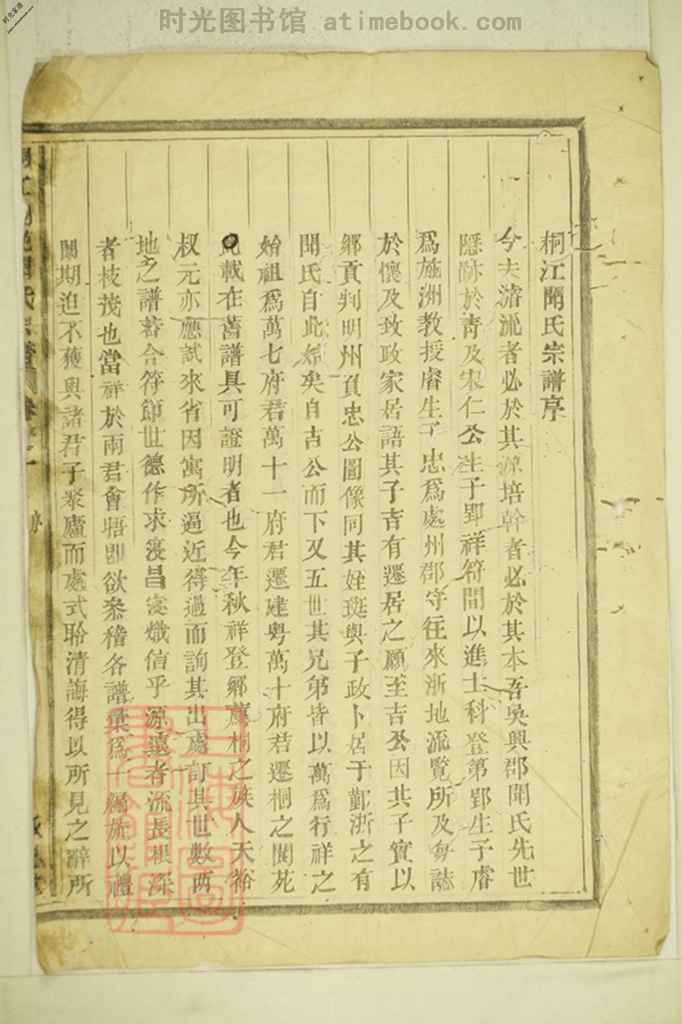 时光图书馆 atimebook.com
桐江聞氏宗譜序
今夫濬流者必於其源培幹者必於其本吾吳興郡聞氏先世
隱跡於靑及宋仁公生子郢祥符間以進士科登第郢生子睿
爲施洲敎授睿生子忠爲處州郡守往來浙地流覽所及每誌
於懷及致政家居語其子吉有遷居之願至吉公因其子實以
鄉貢判明州負忠公圖像同其姪珽與子政卜居于鄞浙之有
聞氏自此始矣自吉公而下又五世其兄弟皆以萬爲行祥之
始祖爲萬七府君萬十一府君遷建粵萬十府君遷桐之聞苑
此載在舊譜具可證明者也今年秋祥登鄉薦桐之族人天裕
权元亦應試來省因寓所逼近得過而詢其出處訂其世數兩
地之譜若合符節世德作求寖昌寖熾信乎源遠者流長根深
者枝茂也當祥於兩君會晤卽欲叅稽各譜彙爲一編施以禮
闈期迫不獲與諸君子聚廬而處式聆清誨得以所見之辭所